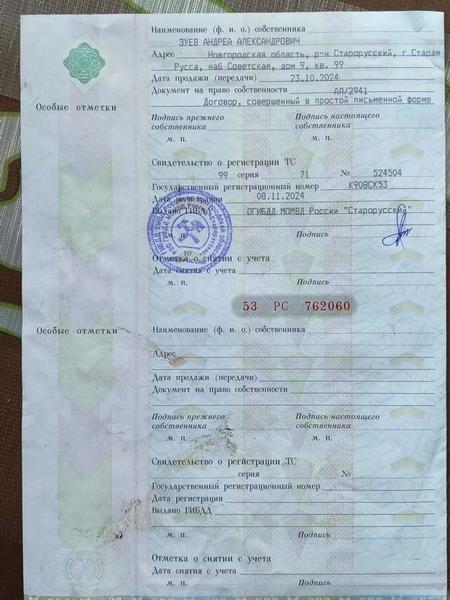 Наименование (ф. и. о.) собственника
ЗУЕВ АНДРЕЙ АЛЕКСАНДРОВИЧ
Адрес Новгородская область, р-н Старорусский, г Старая
Русса, наб Советская, дом 9, кв. 99
Дата продажи (передачи) 23.10.2024
Документ на право собственности АЛ/2941
Особые отметки
Договор, совершенный в простой письменной форме
Подпись прежнего собственника Подпись настоящего собственника
м. п. м. п.
Свидетельство о регистрации ТС
99 серия 71 № 524504
Государственный регистрационный номер К908СК53
Дата регистрации 08.11.2024
Выдано ГИБДД ОГИБДД МОМВД России "Старорусский"
м. п. Подпись
Отметка о снятии с учета
Дата снятия с учета
м. п. Подпись
53 РС 762060
Особые отметки
Наименование (ф. и. о.) собственника
Адрес
Дата продажи (передачи)
Документ на право собственности
Подпись прежнего собственника Подпись настоящего собственника
м. п. м. п.
Свидетельство о регистрации ТС
серия №
Государственный регистрационный номер
Дата регистрации
Выдано ГИБДД
м. п. Подпись
Отметка о снятии с учета
Дата снятия с учета
м. п. Подпись